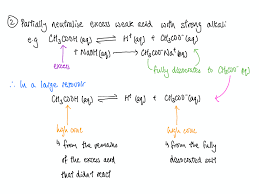 ② Partially neutralise excess weak acid with strong alkali
e.g CH₃COOH (aq) ⇌ H⁺ (aq) + CH₃COO⁻ (aq)
+ NaOH (aq) → CH₃COO⁻Na⁺ (aq)
excess
fully dissociates to CH₃COO⁻ (aq)
∴ In a large
CH₃COOH (aq) ⇌ H⁺ (aq) + CH₃COO⁻ (aq)
high conc
high conc
↳ from the remains
of the excess acid
that didn't react
↳ from the fully
dissociated salt